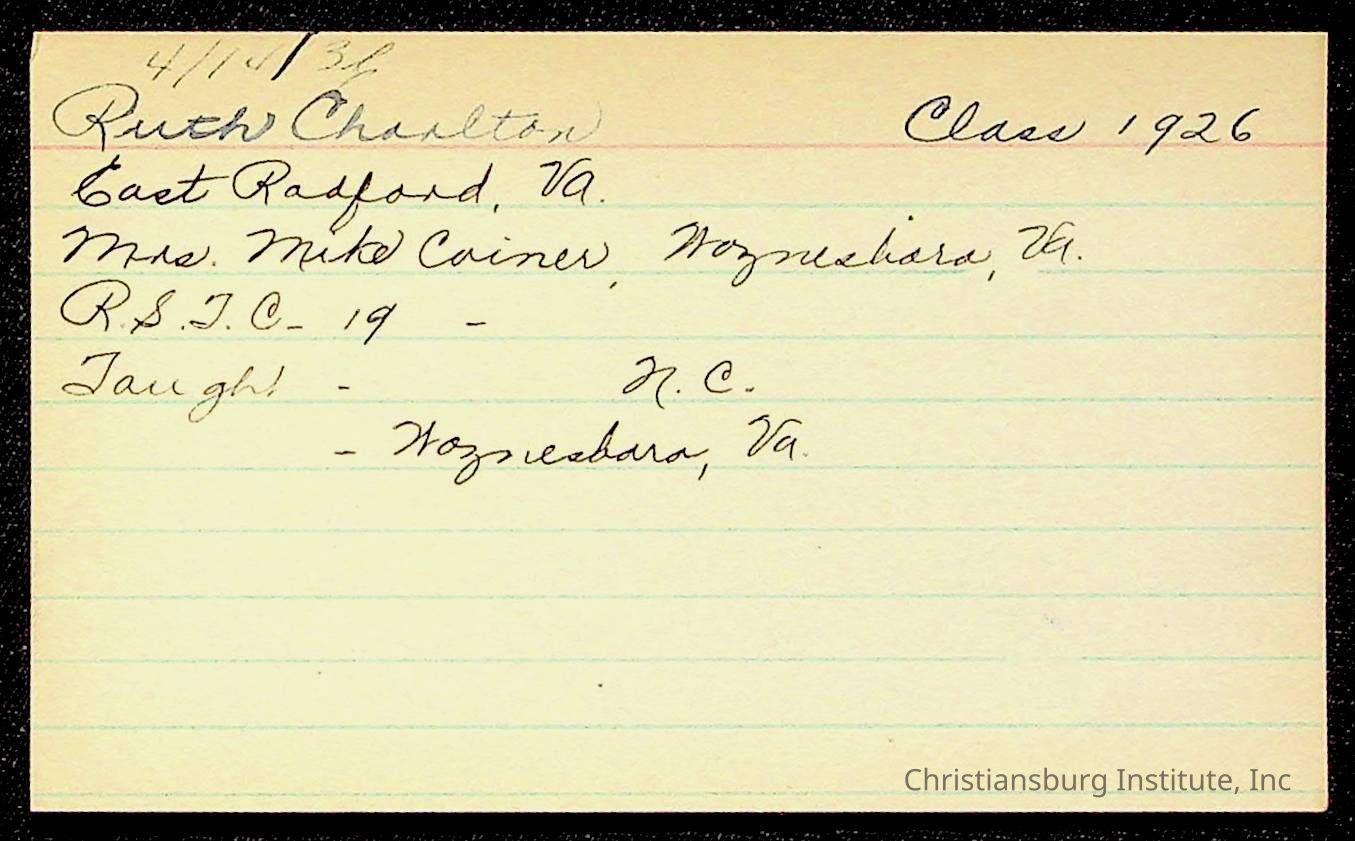 Ruth Charlton Class 1926
East Radford, Va.
Mrs. Mike Coiner, Waynesboro, Va.
R.S.T.C- 19 -
Taught - N.C.
- Waynesboro, Va.
Christiansburg Institute, Inc